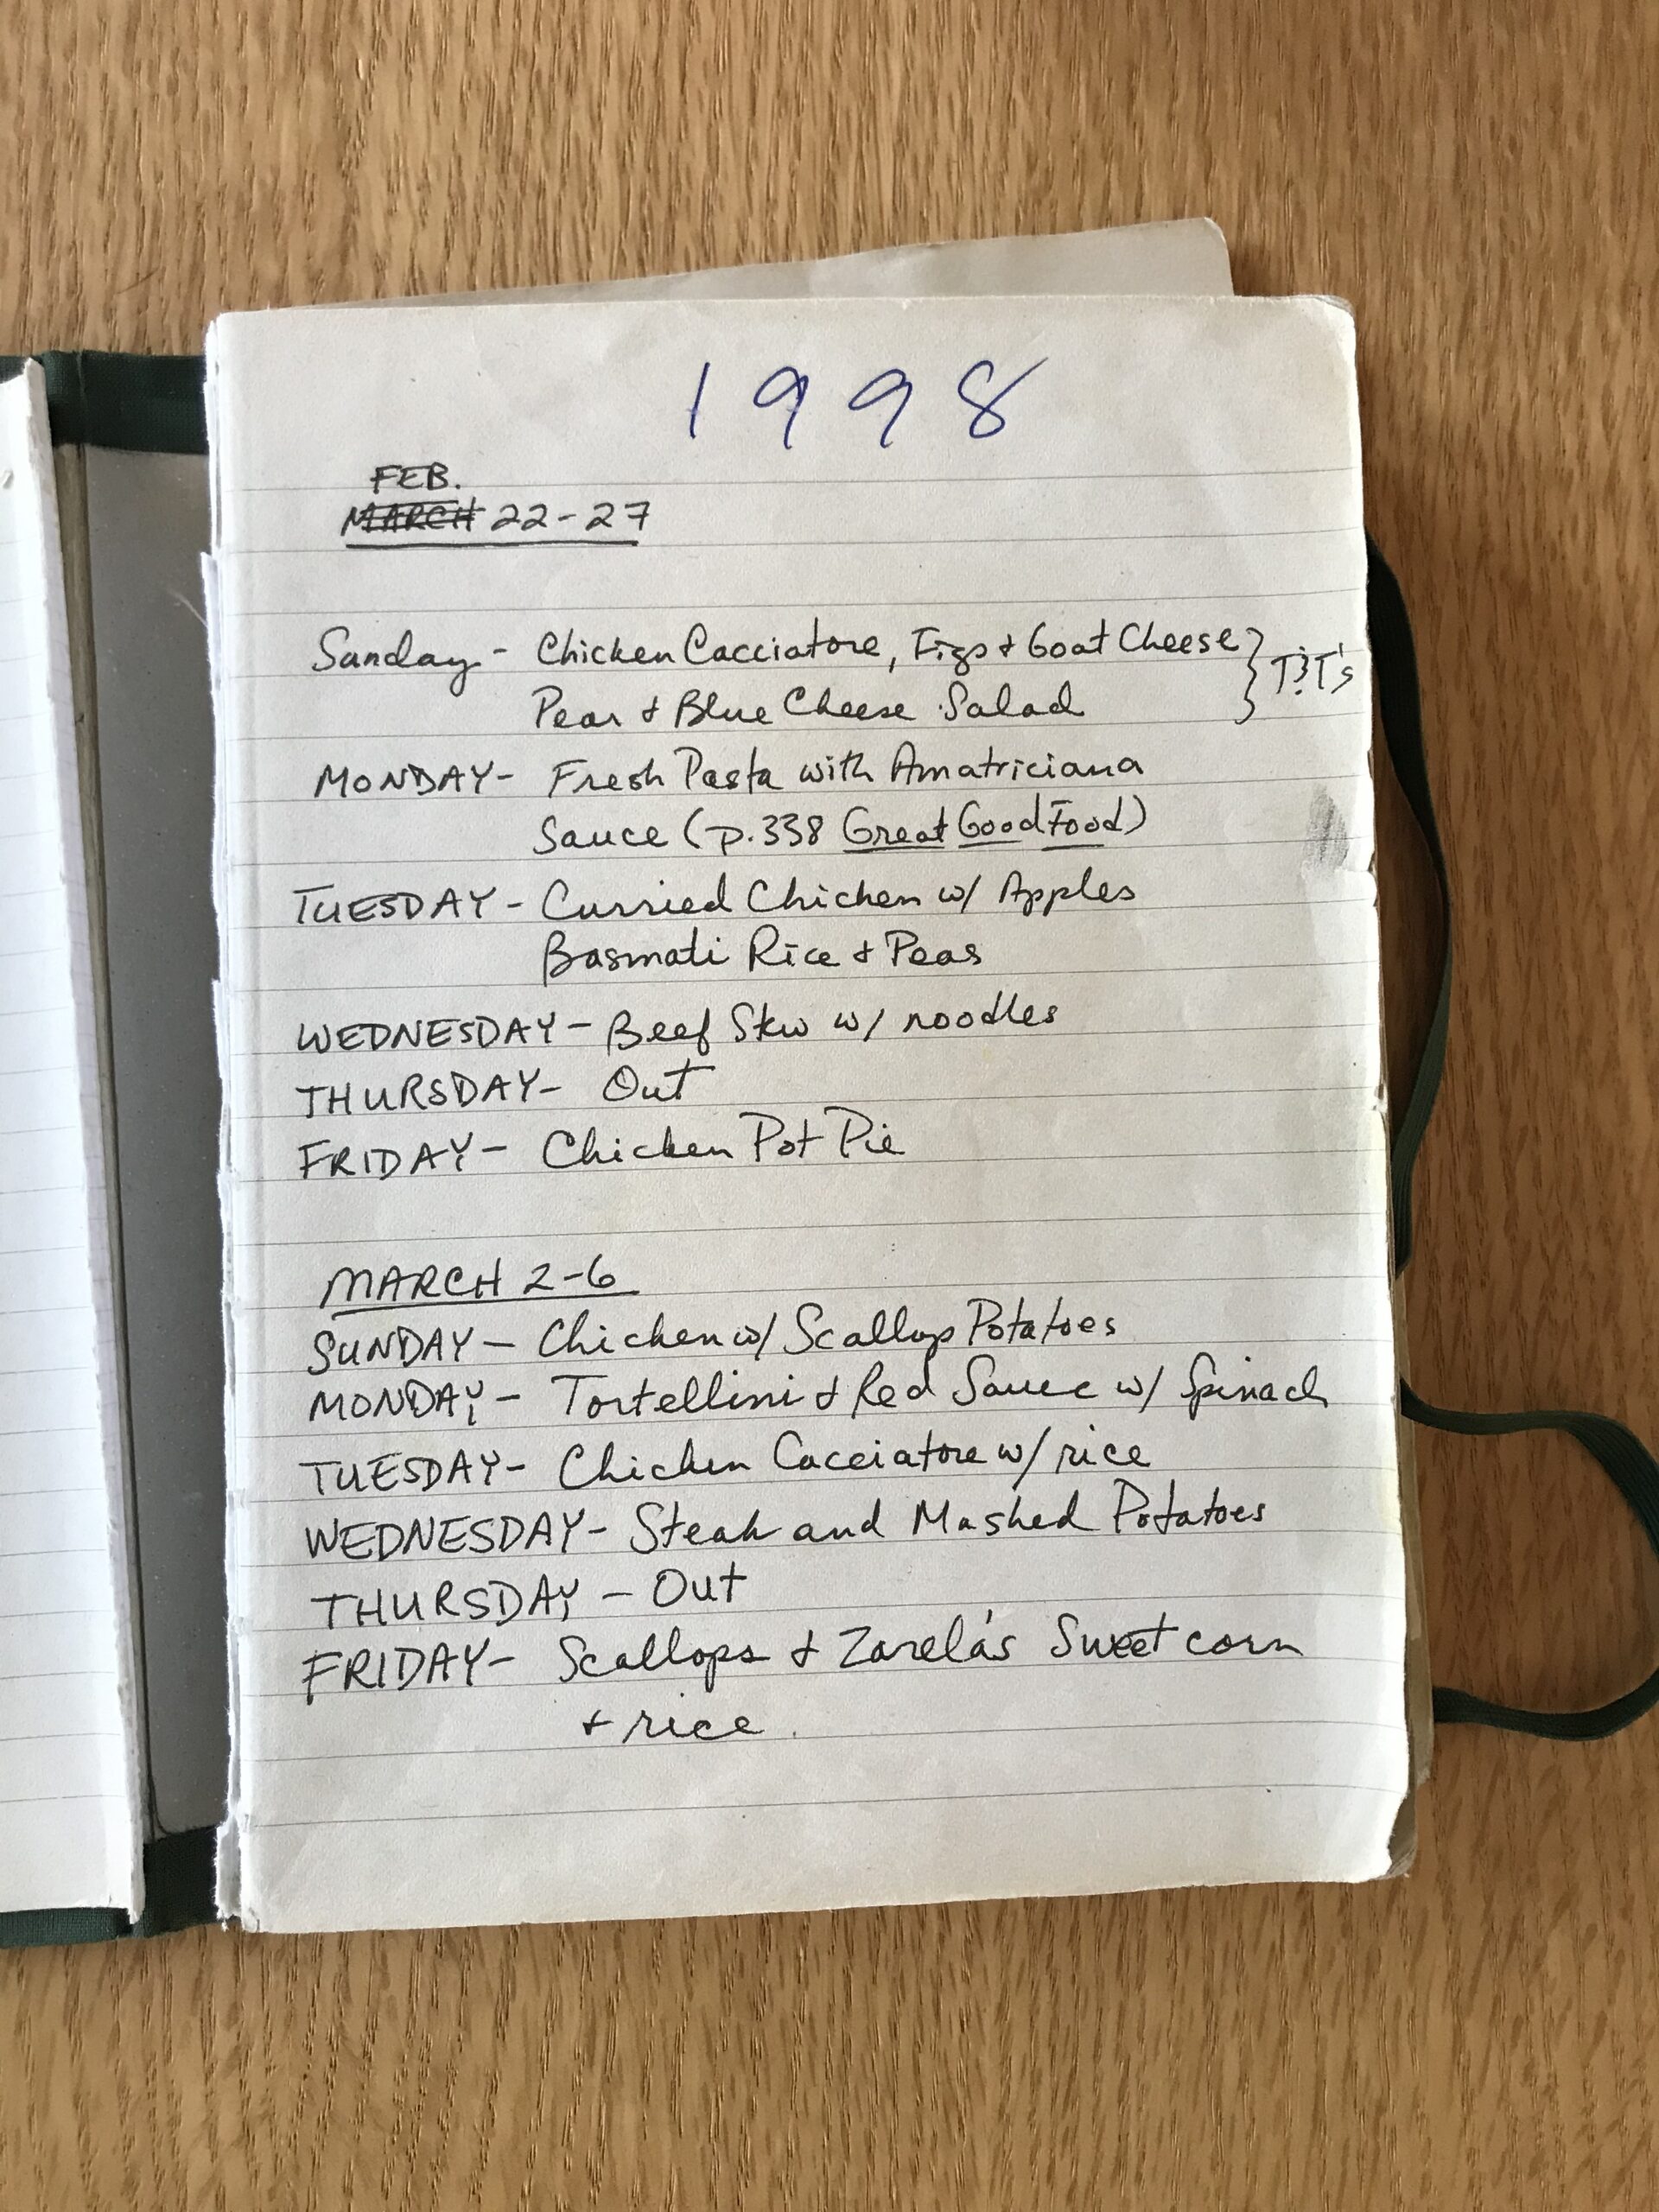 1998
FEB.
MARCH 22-27
Sunday - Chicken Cacciatore, Figs + Goat Cheese } T&T's
Pear + Blue Cheese Salad
MONDAY - Fresh Pasta with Amatriciana
Sauce (p.338 Great Good Food)
TUESDAY - Curried Chicken w/ Apples
Basmati Rice + Peas
WEDNESDAY - Beef Stew w/ noodles
THURSDAY - Out
FRIDAY - Chicken Pot Pie
MARCH 2-6
SUNDAY - Chicken w/ Scallop Potatoes
MONDAY - Tortellini + Red Sauce w/ Spinach
TUESDAY - Chicken Cacciatore w/ rice
WEDNESDAY - Steak and Mashed Potatoes
THURSDAY - Out
FRIDAY - Scallops + Zarela's Sweet corn
+ rice.